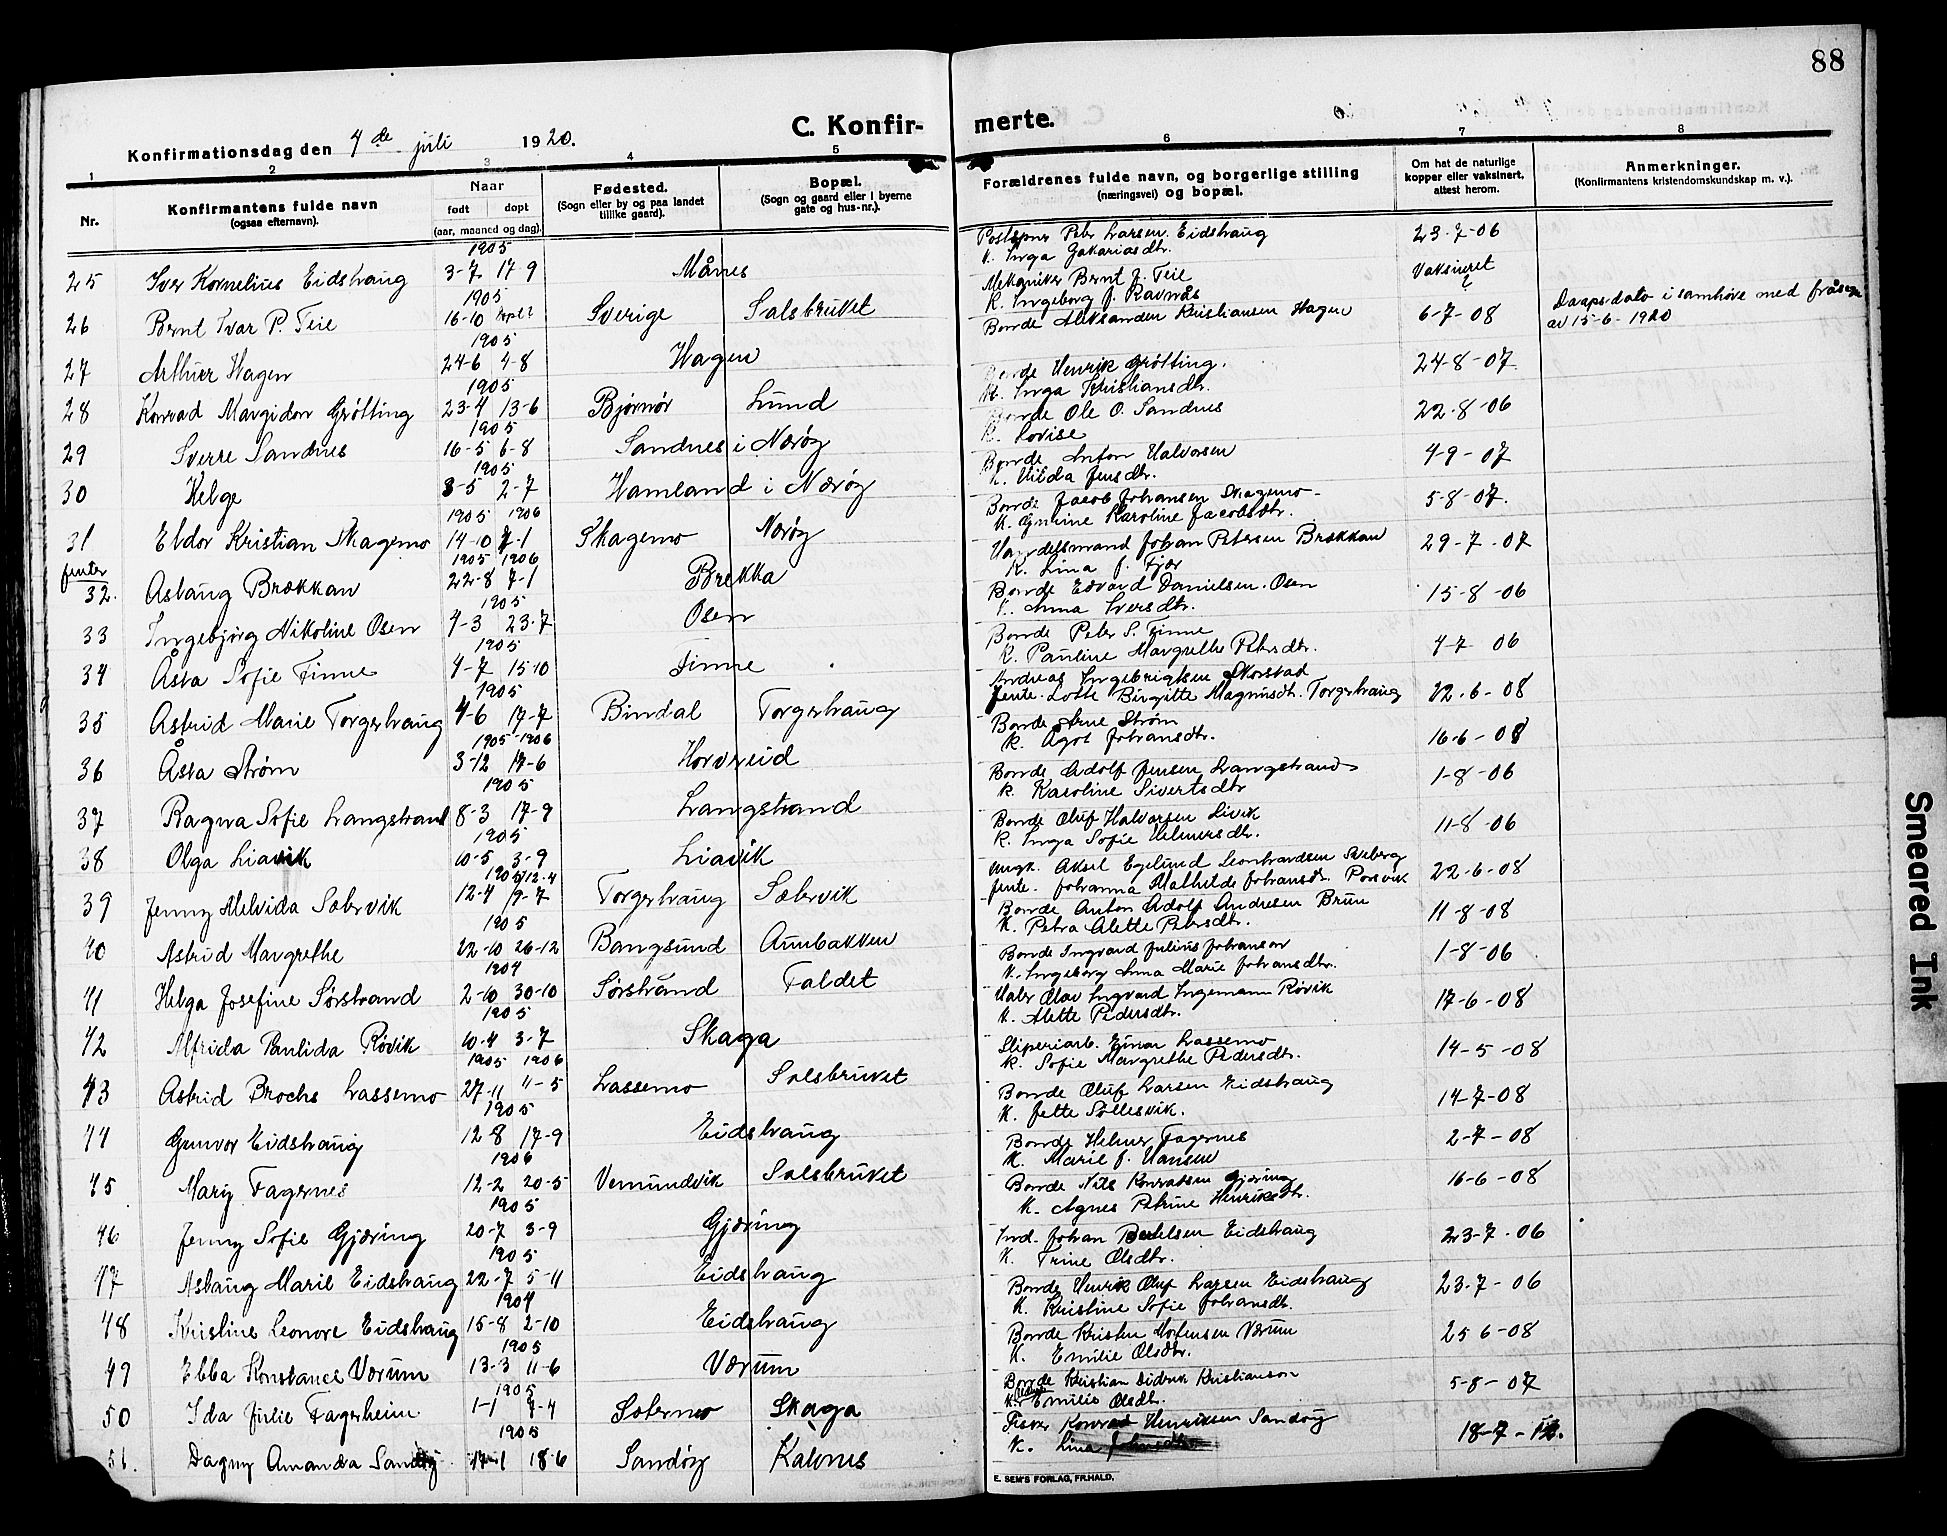 88
C. Konfir- merte.
Konfirmationsdag den 4de juli 1920.
1 2 3 4 5 6 7 8
Nr.
Konfirmantens fulde navn
(ogsaa efternavn).
Naar
født døpt
(aar, maaned og dag).
Fødested.
(Sogn eller by og paa landet
tillike gaard).
Bopæl.
(Sogn og gaard eller i byerne
gate og hus-nr.).
Forældrenes fulde navn, og borgerlige stilling
(næringsvei) og bopæl.
Om hat de naturlige
kopper eller vaksinert,
attest herom.
Anmerkninger.
(Konfirmantens kristendomskundskap m. v.).
1905
25 Iver Kornelius Eidshaug 3-7 17-9 Månes Peter Larsen Eidshaug 23-7-06
K. Inga Zakariasdtr.
1905
26 Bernt Ivar P. Teie 16-10 Sverige Salsbruket Mekaniker Bernt J. Teie Vaksineret
K. Ingeborg J. Ravnås
Daapsdato i samhøve med
av 15-6-1920
1905
27 Arthur Hagen 24-6 4-8 Hagen Bonde Aleksander Kristiansen Hagen 6-7-08
1905
28 Konrad Margidon Grötting 23-4 13-6 Bjørnør Lund Bonde Henrik Grötting. 24-8-07
K. Inga Kristiansdtr.
1905
29 Sverre Sandnes 16-5 6-8 Sandnes i Nærøy Bonde Ole O. Sandnes 22-8-06
K. Lovise
1905
30 Helge 3-5 2-7 Hamland i Nærøy Bonde Anton Halvorsen 4-9-07
K. Hilda Jensdtr.
1905 1906
31 Eldor Kristian Skagemo 14-10 7-1 Skagemo Nærøy Bonde Jacob Johansen Skagemo 5-8-07.
K. Gurine Karoline Jacobsdtr.
jenter
1905 1906
32. Aslaug Brækkan 22-8 7-1 Brekka Handelsmand Johan Petersen Brækkan 29-7-07
K. Lina J. Fjær
1905
33 Ingebjørg Nikoline Osen 4-3 23-7 Osen Bonde Edvard Danielsen Osen 15-8-06
K. Anna Iversdtr.
1905
34 Åsta Sofie Finne 4-7 15-10 Finne Bonde Peter S. Finne 4-7 06
K. Pauline Margrethe Petersdtr.
1905
35 Astrid Marie Torgerhaug 4-6 17-7 Bindal Torgerhaug Andreas Ingebrigtsen Storstad 22-6-08
Jente. Lotte Birgitte Magnusdt. Torgerhaug
1905-1906
36 Åsta Strøm 3-12 17-6 Horvereid Bonde Arne Strøm 16-6-08
K. Ågot Johansdtr.
1905
37 Ragna Sofie Langstrand 8-3 17-9 Langstrand Bonde Adolf Jensen Langstrand 1-8-06
K. Karoline Sivertsdtr
1905
38 Olga Liavik 10-5 3-9 Liavik Bonde Oluf Halvorsen Livik 11-8-06
K. Inga Sofie Helmersdtr.
1905
39 Jenny Melvida Salervik 12-4 9-7 Torgerhaug Salervik Ungk. Aksel Egelund Leonhardsen 22-6-08
Jente. Johanna Mathilde Johansdt.
1905
40 Astrid Margrethe 22-10 26-12 Bangsund Aunbakken Bonde Anton Adolf Andresen Bruu 11-8-08
K. Petra Alette Petersdtr.
1904
41 Helga Josefine Sørstrand 2-10 30-10 Sørstrand Faldet Bonde Ingvard Julius Johansen 1-8-06
K. Ingeborg Anna Marie Johansdtr.
1905
42 Alfrida Paulida Røvik 10-4 3-7 Skaga Olav Ingvard Ingemann Røvik 17-6-08
K. Alette Pedersdtr.
1905 1906
43 Astrid Brochs Lassemo 27-11 11-5 Lassemo Salsbruket Sliperiarb. Einar Lassemo 14-5-08
K. Sofie Margrethe Pedersdtr.
1905
44 Gunvor Eidshaug 12-8 17-9 Eidshaug Bonde Oluf Larsen Eidshaug 14-7-08
K. Jette Söllesvik.
1906
45 Mary Fagernes 12-2 20-5 Vemundvik Salsbruket Bonde Helmer Fagernes 2-7-08
K. Marie J. Hansen
1905
46 Jenny Sofie Gjæring 20-7 3-9 Gjæring Bonde Nils Konradsen Gjæring 16-6-08
K. Agnes Petrine Henriksdtr.
1905
47 Aslaug Marie Eidshaug 22-7 5-11 Eidshaug Ind. Johan Bertelsen Eidshaug 23-7-06
K. Trine Olsdtr.
1904
48 Kristine Leonore Eidshaug 15-8 2-10 Eidshaug Bonde Henrik Oluf Larsen Eidshaug 23-7-06
K. Kristine Sofie Johansdtr.
1905
49 Ebba Konstance Værum 13-3 11-6 Værum Bonde Kristen Mortensen Værum 25 6-08
K. Emilie Olsdtr.
1905
50 Ida Julie Fagerheim 1-1 9-4 Salerno Skaga Bonde Kristian Didrik Kristianson 5-8-07
K. Emilie Olsdtr.
1905
51. Dagny Amanda Sandøy 14-1 18-6 Sandøy Kalvnes Fisker Konrad Henriksen Sandøy 18-7-12.
K. Lina
E. SEM'S FORLAG, FR.HALD.
Smeared Ink